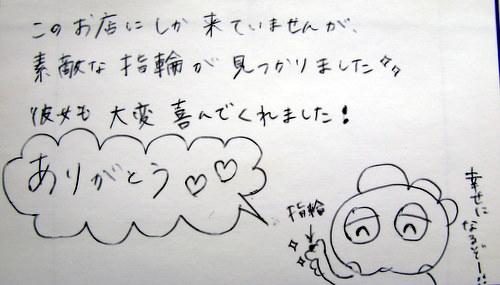 このお店にしか来ていませんが、
素敵な指輪が見つかりました
彼女も大変喜んでくれました！
ありがとう♡♡
指輪
幸せになるぞー!!